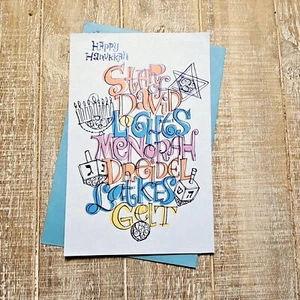 Happy
Hanukkah
Star of
David
Lights
Menorah
Dreidel
Latkes
Gelt